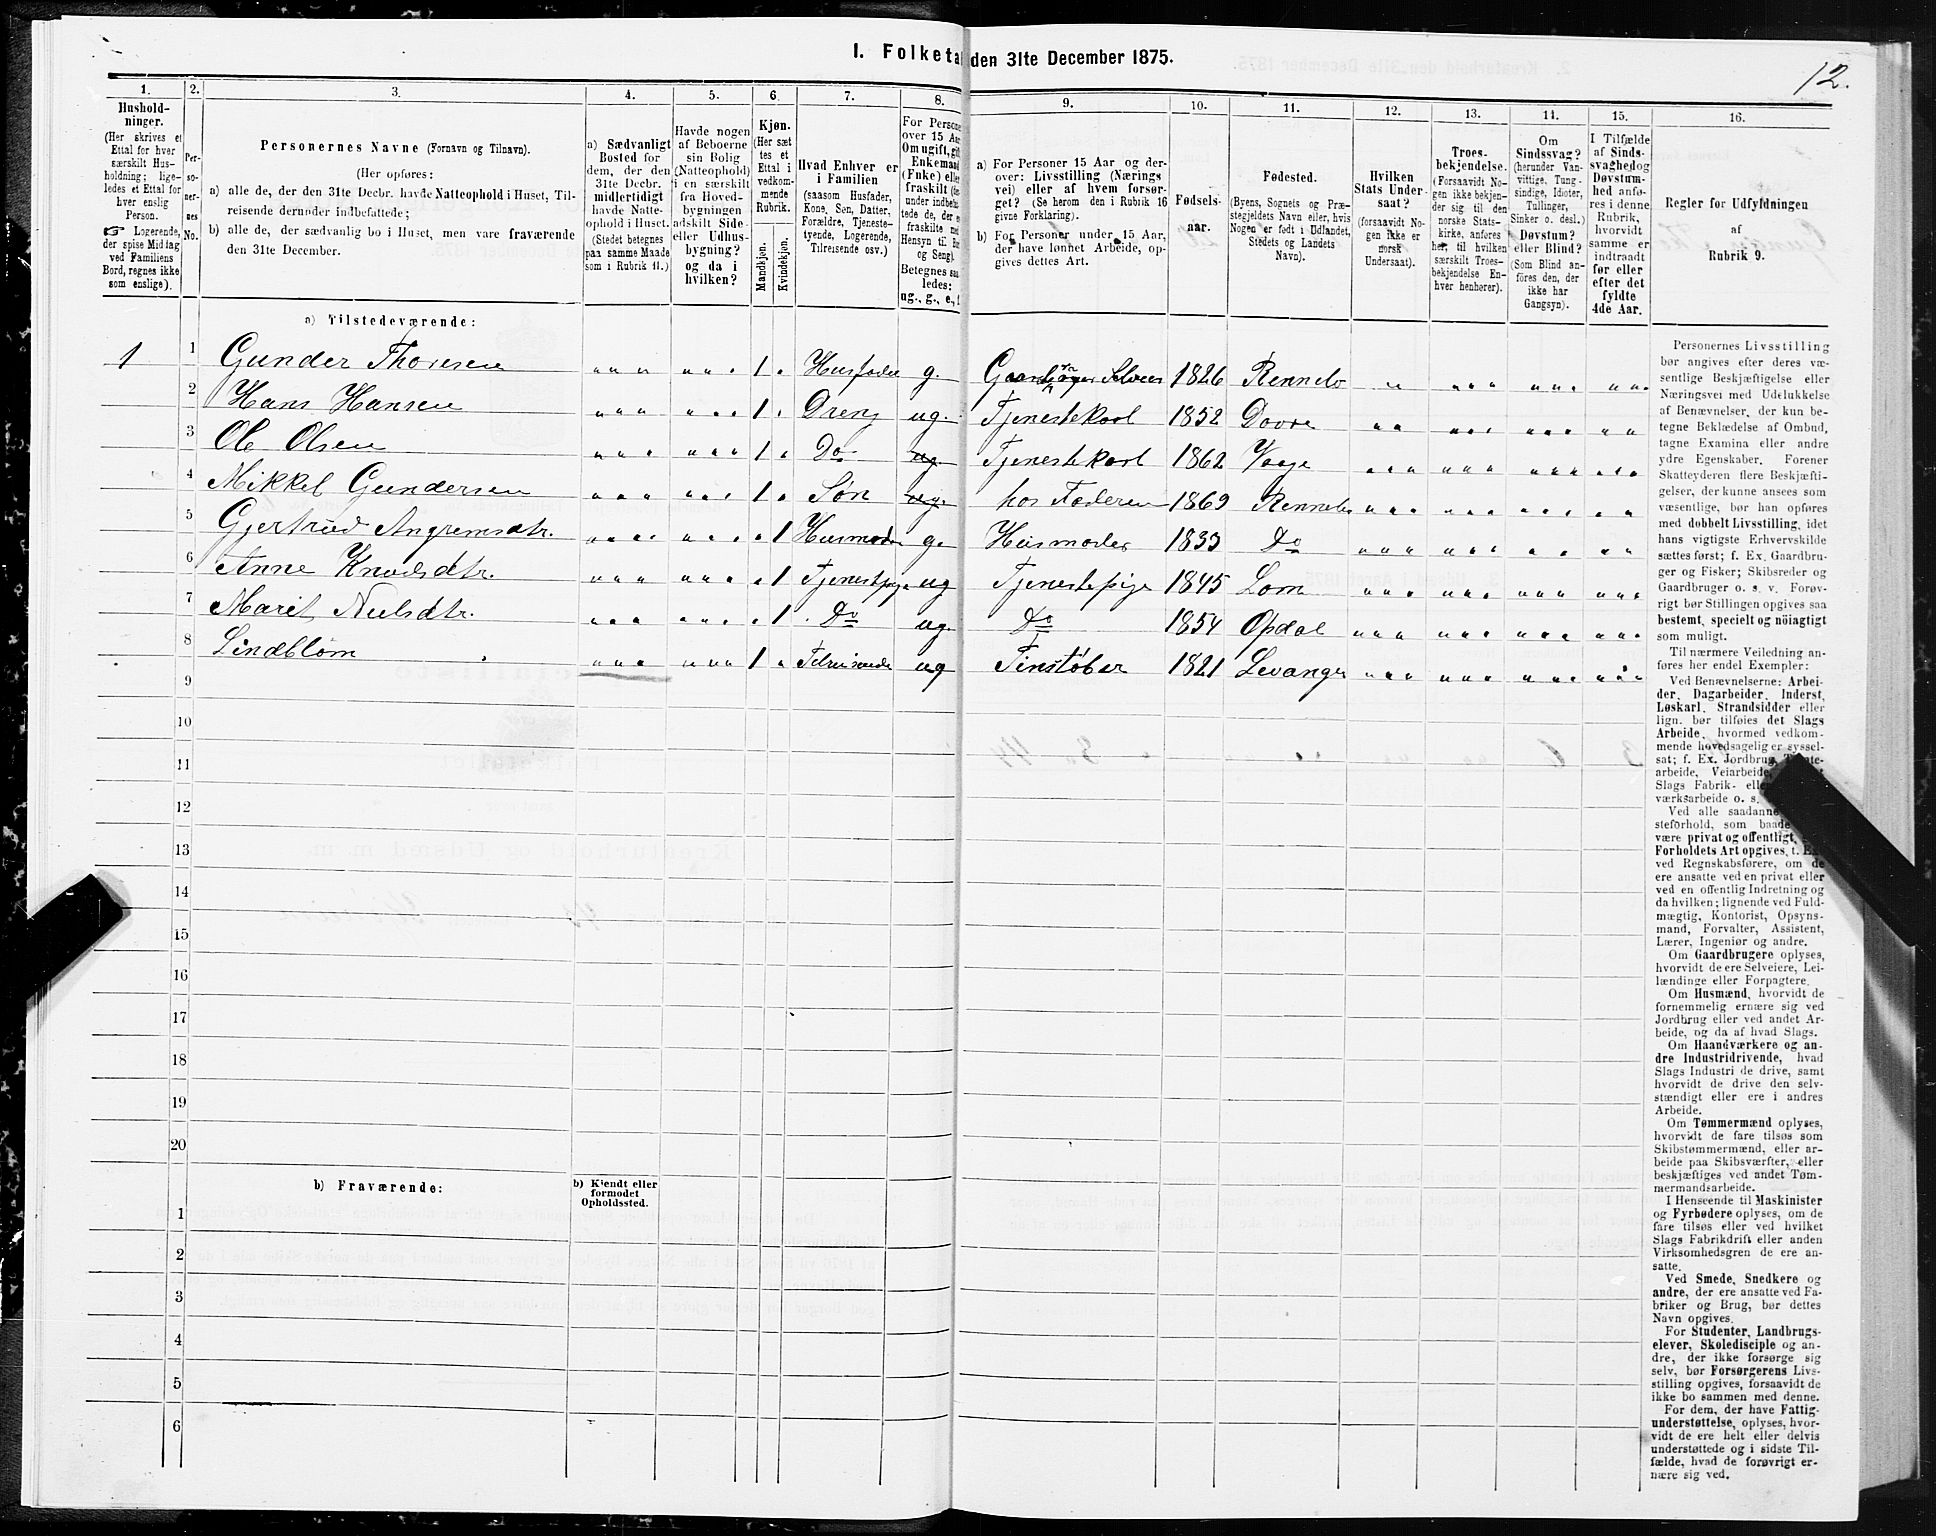 I. Folketal den 31te December 1875.
12.
1. 2. 3. 4. 5. 6. 7. 8. 9. 10. 11. 12. 13. 14. 15. 16.
Hushold-
ninger.
(Her skrives et
Ettal for hver
særskilt Hus-
holdning; lige-
ledes et Ettal for
hver enslig
Person.
☞ Logerende,
der spise Middag
ved Familiens
Bord, regnes ikke
som enslige).
Per-
so-
ner-
nes
No.
Personernes Navne (Fornavn og Tilnavn).
(Her opføres:
a) alle de, der den 31te Decbr. havde Natteophold i Huset, Til-
reisende derunder indbefattede;
b) alle de, der sædvanlig bo i Huset, men vare fraværende
den 31te December.
a) Sædvanligt
Bosted for
dem, der den
31te Decbr.
midlertidigt
havde Natte-
ophold i Huset.
(Stedet betegnes
paa samme Maade
som i Rubrik 11.)
Havde nogen
af Beboerne
sin Bolig
(Natteophold)
i en særskilt
fra Hoved-
bygningen
adskilt Side-
eller Udhus-
bygning?
og da i
hvilken?
Kjøn.
(Her sæt-
tes et
Ettal i
vedkom-
mende
Rubrik.
Mandkjøn.
Kvindekjøn.
Hvad Enhver er
i Familien
(saasom Husfader,
Kone, Søn, Datter,
Forældre, Tjeneste-
tyende, Logerende,
Tilreisende osv.)
For Persone
over 15 Aar
Om ugift, gift
Enkemand
(Enke) eller
fraskilt
under indbe
tede de, der e
fraskilte
Hensyn til Bo
og Seng).
Betegnes saa-
ledes:
ug., g., e.,
a) For Personer 15 Aar og der-
over: Livsstilling (Nærings-
vei) eller af hvem forsør-
get? (Se herom den i Rubrik 16
givne Forklaring).
b) For Personer under 15 Aar,
der have lønnet Arbeide, op-
gives dettes Art.
Fødsels-
aar.
Fødested.
(Byens, Sognets og Præ-
stegjeldets Navn eller, hvis
Nogen er født i Udlandet,
Stedets og Landets
Navn).
Hvilken
Stats Under-
saat?
(forsaavidt No-
gen ikke er
norsk
Undersaat).
Troes-
bekjendelse.
(Forsaavidt No-
gen ikke bekjen-
der sig til den
norske Stats-
kirke, anføres
her, til hvilken
særskilt Troes-
bekjendelse En-
hver henhører).
Om
Sindssvag?
(herunder Van-
vittige, Tung-
sindige, Idioter,
Tullinger,
Sinker o. desl.)
Døvstum?
eller Blind?
(Som Blind an-
føres den, der
ikke har
Gangsyn).
I Tilfælde
af Sinds-
svaghed og
Døvstum-
hed anfø-
res i denne
Rubrik,
hvorvidt
samme er
indtraadt
før eller
efter det
fyldte
4de Aar.
Regler for Udfyldningen
af
Rubrik 9.
a) Tilstedeværende:
1 1 Gunder Thoresen 1 Husfader g. Gaardbruger Selveier 1826 Rennebo
2 Hans Hansen 1 Dreng ug. Tjenestekarl 1852 Dovre
3 Ole Olsen 1 Do ug. Tjenestekarl 1862 Vaage
4 Mikkel Gundersen 1 Søn ug. hos Faderen 1869 Rennebo
5 Gjertrud Angremsdtr. 1 Husmoder g. Husmoder 1833 Do
6 Anne Knudsdtr. 1 Tjenestpige ug Tjenestepige 1845 Lom
7 Marit Nielsdtr. 1 Do ug. Do 1854 Opdal
8 Lindblom 1 Tilreisende ug Tinstøber 1821 Levanger
9
10
11
12
13
14
15
16
17
18
19
20
b) Fraværende:
b) Kjendt eller
formodet
Opholdssted.
1
2
3
4
5
6
Personernes Livsstilling
bør angives efter deres væ-
sentlige Beskjæftigelse eller
Næringsvei med Udelukkelse
af Benævnelser, der kun be-
tegne Beklædelse af Ombud,
tagne Examina eller andre
ydre Egenskaber. Forener
Skatteyderen flere Beskjæfti-
gelser, der kunne ansees som
væsentlige, bør han opføres
med dobbelt Livsstilling, idet
hans vigtigste Erhvervskilde
sættes først; f. Ex. Gaardbru-
ger og Fisker; Skibsreder og
Gaardbruger o. s. v. Forøv-
rigt bør Stillingen opgives saa
bestemt, specielt og nöiagtigt
som muligt.
Til nærmere Veiledning an-
føres her endel Exempler:
Ved Benævnelserne: Arbei-
der, Dagarbeider, Inderst,
Løskarl, Strandsidder eller
lign. bør tilføies det Slags
Arbeide, hvormed vedkom-
mende hovedsagelig er syssel-
sat; f. Ex. Jordbrug,
arbeide, Veiarbeide,
Slags Fabrik- elle
værksarbeide o. s.
Ved alle saadanne
steforhold, som baade
være privat og offentligt,
Forholdets Art opgives, t. Ex.
ved Regnskabsførere, om de
ere ansatte ved en privat eller
ved en offentlig Indretning og
da hvilken; lignende ved Fuld-
mægtig, Kontorist, Opsyns-
mand, Forvalter, Assistent,
Lærer, Ingeniør og andre.
Om Gaardbrugere oplyses,
hvorvidt de ere Selveiere, Lei-
lændinge eller Forpagtere.
Om Husmænd, hvorvidt de
fornemmelig ernære sig ved
Jordbrug eller ved andet Ar-
beide, og da af hvad Slags.
Om Haandværkere og an-
dre Industridrivende, hvad
Slags Industri de drive, samt
hvorvidt de drive den selv-
stændigt eller ere i andres
Arbeide.
Om Tømmermænd oplyses,
hvorvidt de fare tilsøs som
Skibstømmermænd, eller ar-
beide paa Skibsværfter, eller
beskjæftiges ved andet Tøm-
mermandsarbeide.
I Henseende til Maskinister
og Fyrbødere oplyses, om de
fare tilsøs eller ved hvilket
Slags Fabrikdrift eller anden
Virksomhedsgren de ere an-
satte.
Ved Smede, Snedkere og
andre, der ere ansatte ved Fa-
briker og Brug, bør dettes
Navn opgives.
For Studenter, Landbrugs-
elever, Skoledisciple og an-
dre, der ikke forsørge sig
selv, bør Forsørgerens Livs-
stilling opgives, forsaavidt de
ikke bo sammen med denne.
For dem, der have Fattig-
understøttelse, oplyses, hvor-
vidt de ere helt eller delvis
understøttede og i sidste Til-
fælde, hvad de forøvrigt er-
nære sig ved.